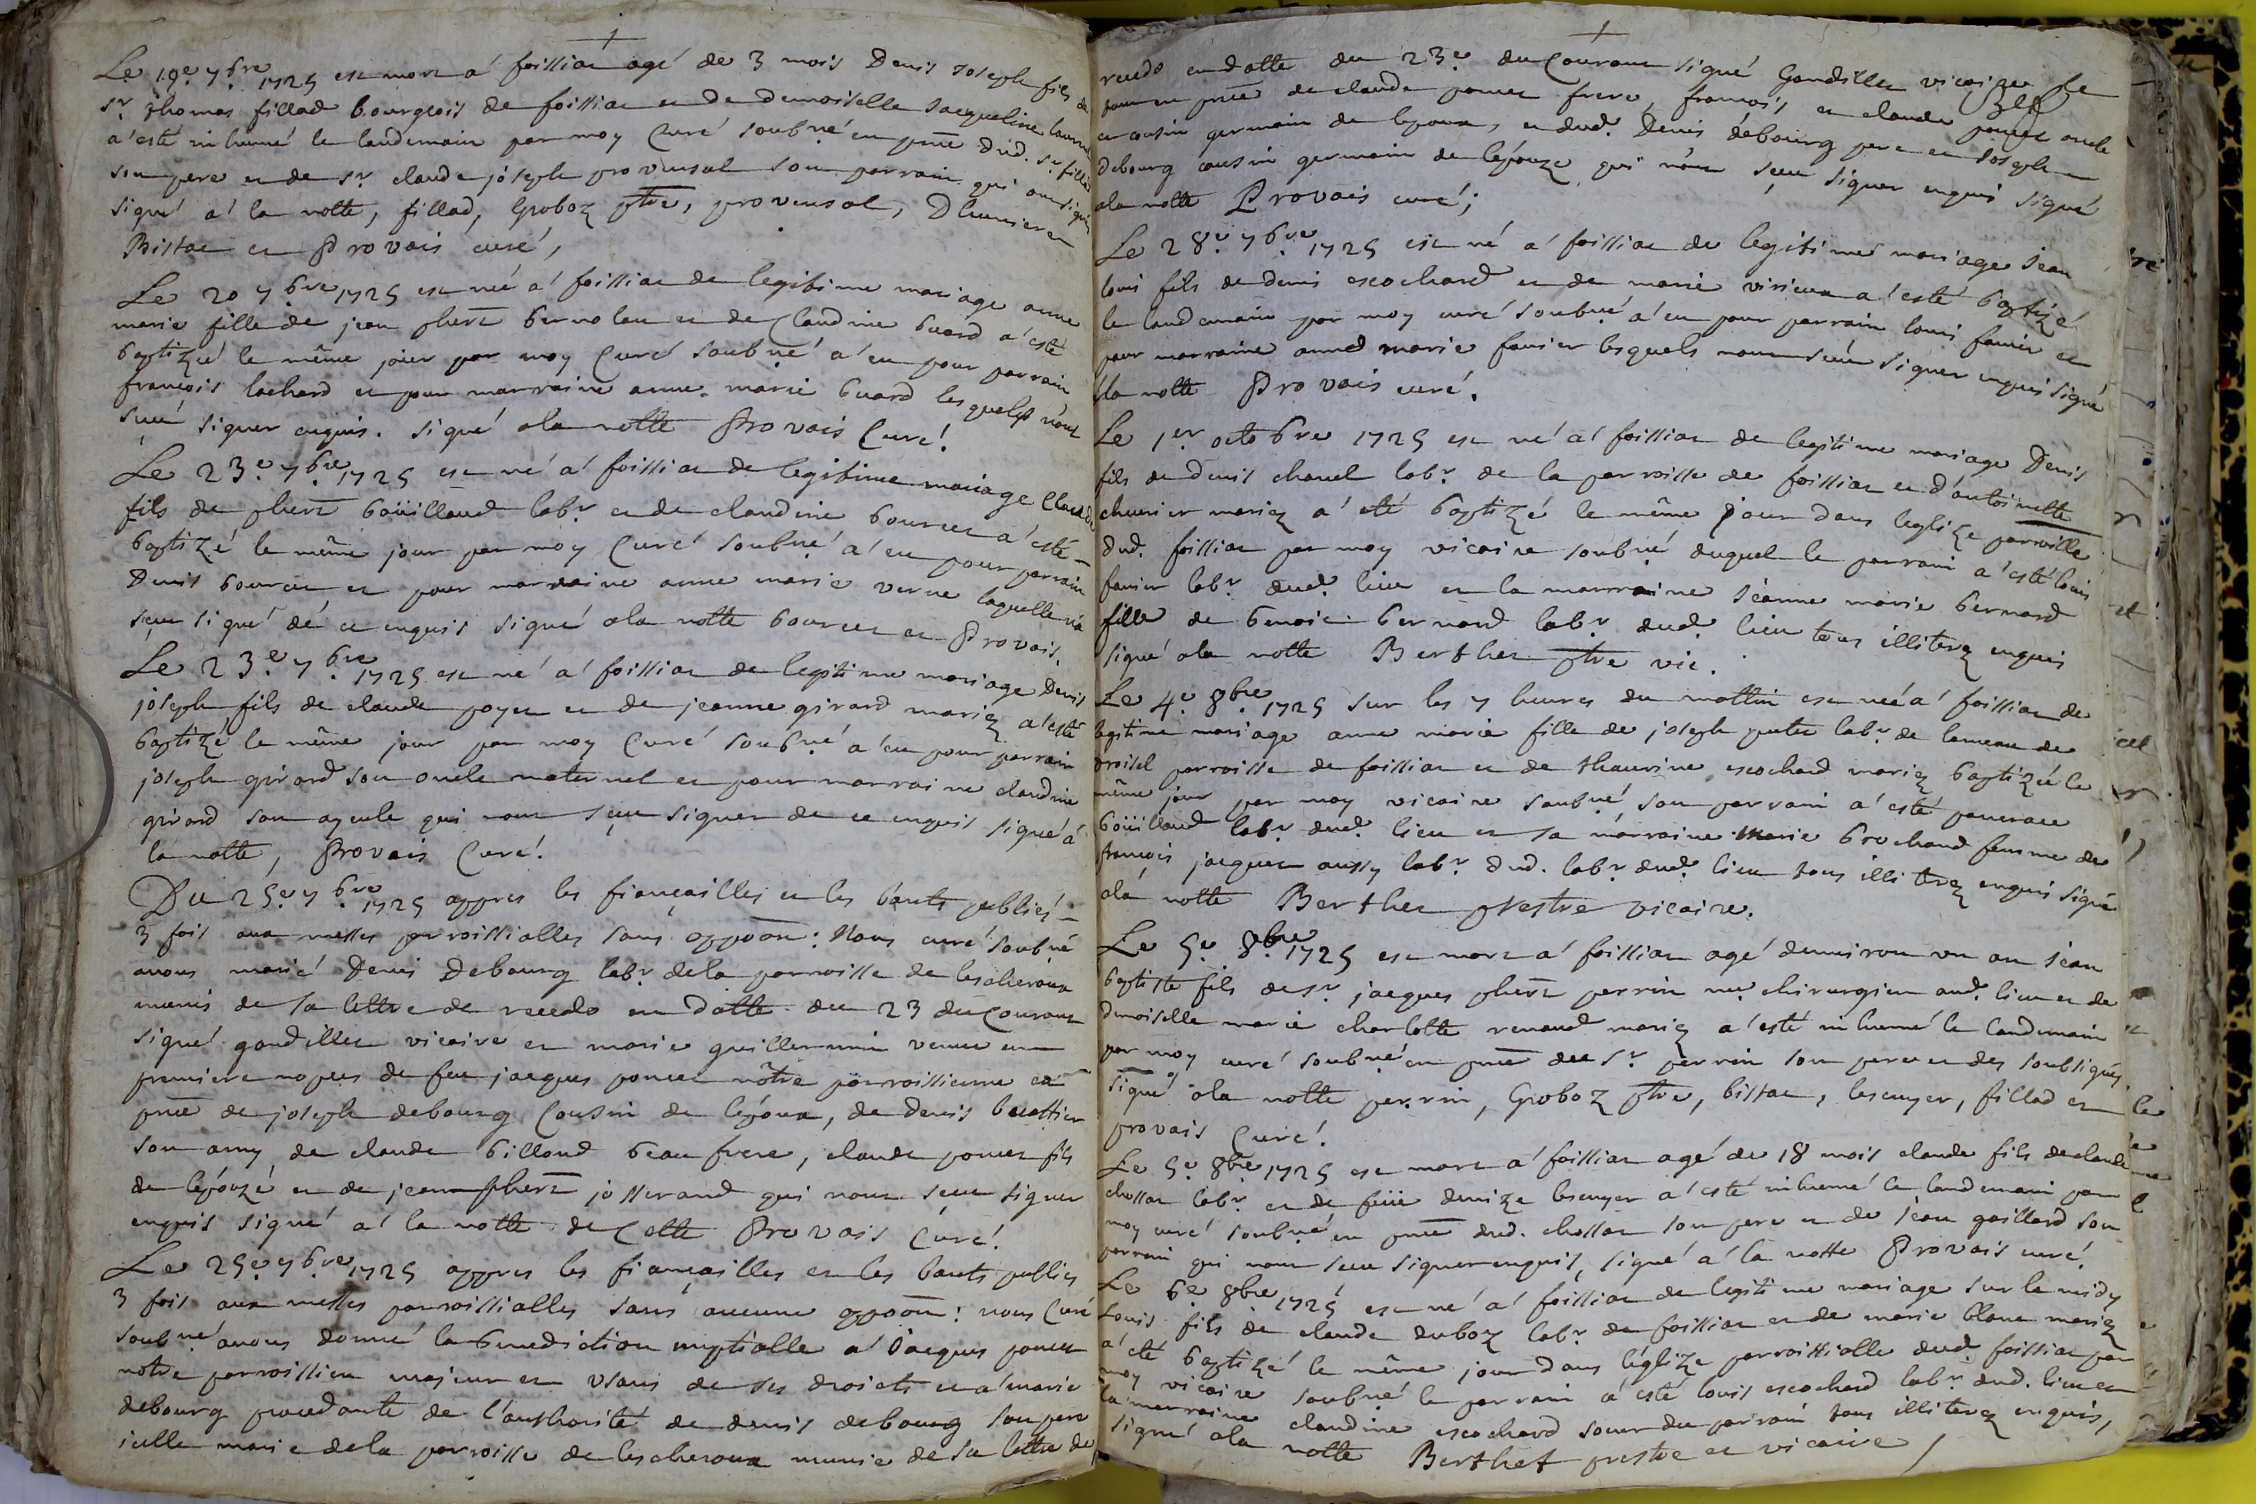 Le 19e 7bre 1725 est mort a' foissiat agé de 3 mois Denis Joseph fils de
sr thomas fillod bourgeois de foissiat et de demoiselle Jacqueline
a' esté inhumé le landemain par moy Curé soubné en pnce dud. sr fillod
son pere et de sr claude joseph provensal son parrain qui ont signé
signé a' la notte, fillod, Groboz ptre, provensal,
Bistac et Provais curé,
Le 20 7bre 1725 est née a' foissiat de legitime mariage anne
marie fille de jean phert bernolin et de Claudine buard a' esté
baptizée le même jour par moy Curé soubné a' eu pour parrain
françois lochard et pour marraine anne marie buard lesquels n'ont
sceu signer enquis. signé a la notte Provais Curé!
Le 23e 7bre 1725 est né a' foissiat de legitime mariage Claude
fils de phert boüilloud labr et de claudine bourcet a' esté
baptizé le même jour par moy Curé soubné a' eu pour parrain
Denis bourcet et pour marraine anne marie verne laquelle n'a
sceu signé dé ce enquis signé a la notte bourcet et Provais.
Le 23e 7bre 1725 est né a' foissiat de legitime mariage Denis
joseph fils de claude poyet et de jeanne girard mariez a' esté
baptizé le même jour par moy Curé soubné a' eu pour parrain
joseph girard son oncle maternel et pour marraine claudine
girard son ayeule qui n'ont sceu signer de ce enquis signé a'
la notte, Provais Curé!
Du 25e 7bre 1725 appres les fiançailles et les bants publiés
3 fois aux messes parroissialles sans oppoon: Nous curé soubné
avons marié Denis Debourg labr dela parroisse de lescheroux
munis de sa lettre de recedo en datte du 23 du Courant
signé gandillet vicaire et marie guillermin veuve en
premiere nopces de feu jacques poncet nôtre parroissienne en
pnce de joseph debourg Cousin de l'epoux, de denis buattier
son amy de claude billoud beau frere, claude poncet fils
de l'epouze et de jean phert josserand qui n'ont sceu signer
enquis signé a' la notte de Cette Provais Curé!
Le 25e 7bre 1725 appres les fiançailles et les bants publies
3 fois aux messes parroissialles sans aucune oppoon: nous Curé
soubné avons donné la benediction nuptialle a' Jacques poncet
notre parroissien majeur et usans de ses droicts et a' marie
debourg procedante de l'authorité de denis debourg son pere
icelle marie dela parroisse de lescheroux munie de sa lettre de
recedo en datte du 23e du Courant signé Gandillet vicaire le
tout en pnce de claude poncet frere, françois et claude poncet oncle
et cousin germain de lepoux, et dud. Denis debourg pere et Joseph
debourg cousin germain de lépouze qui n'ont sceu signer enquis signé
ala notte Provais curé;
Le 28e 7bre 1725 est né a' foissiat de legitime mariage Jean
louis fils de denis escochard et de marie virieux a' esté baptizé
le landemain par moy curé soubné a' eu pour parrain louis favier et
pour marraine anne marie favier lesquels n'ont sceu signer enquis signé
ala notte Provais curé.
Le 1er octobre 1725 est né a' foissiat de legitime mariage Denis
fils de denis chanel labr de la parroisse de foissiat et d'antoinette
chevrier mariez a' eté baptizé le même jour dans leglize parroissialle
dud. foissiat par moy vicaire soubné duquel le parrain a' esté louis
favier labr dud. lieu et la marraine Jéanne marie bernard
fille de benoit bernard labr dud. lieu tous illiterez enquis
signé a la notte Berthet ptre vic.
Le 4e 8bre 1725 sur les 7 heures du mattin est née a' foissiat de
legitime mariage anne marie fille de joseph putet labr de lameau de
broisel parroisse de foissiat et de thaurine escochard mariez baptizée le
même jour par moy vicaire soubné son parrain a' esté pancrace
boüilloud labr dud. lieu et sa marraine marie brochand femme de
françois jacquet aussy labr dud. labr dud. lieu tous illiterez enquis signé
ala notte Berthet prestre vicaire.
Le 5e 8bre 1725 est mort a' foissiat agé denviron un an Jean
baptiste fils de sr jacques phert perrin me chirurgien aud. lieu et de
demoiselle marie charlotte renaud mariez a' esté inhumé le landemain
par moy curé soubné en pnce du sr perrin son pere et des soubsignés
signé a la notte perrin, Groboz ptre, bistac, lescuyer, fillod et
provais Curé!
Le 5e 8bre 1725 est mort a' foissiat agé de 18 mois claude fils de claude
chossat labr et de feüe denize lescuyer a' esté inhumé le landemain par
moy curé soubné en pnce dud. chossat son pere et de Jean gaillard son
parrain qui n'ont sceu signer enquis, signé a' la notte Provais curé!
Le 6e 8bre 1725 est né a' foissiat de legitime mariage sur le midy
Louis fils de claude duboz labr de foissiat et de marie blanc mariez
a' eté baptizé le même jour dans l'églize parroissialle dud. foissiat par
moy vicaire soubné le parrain a' esté louis escochard labr dud. lieu et
la marraine claudine escochard soeur du parrain tous illiterez enquis,
signé ala notte Berthet prestre et vicaire